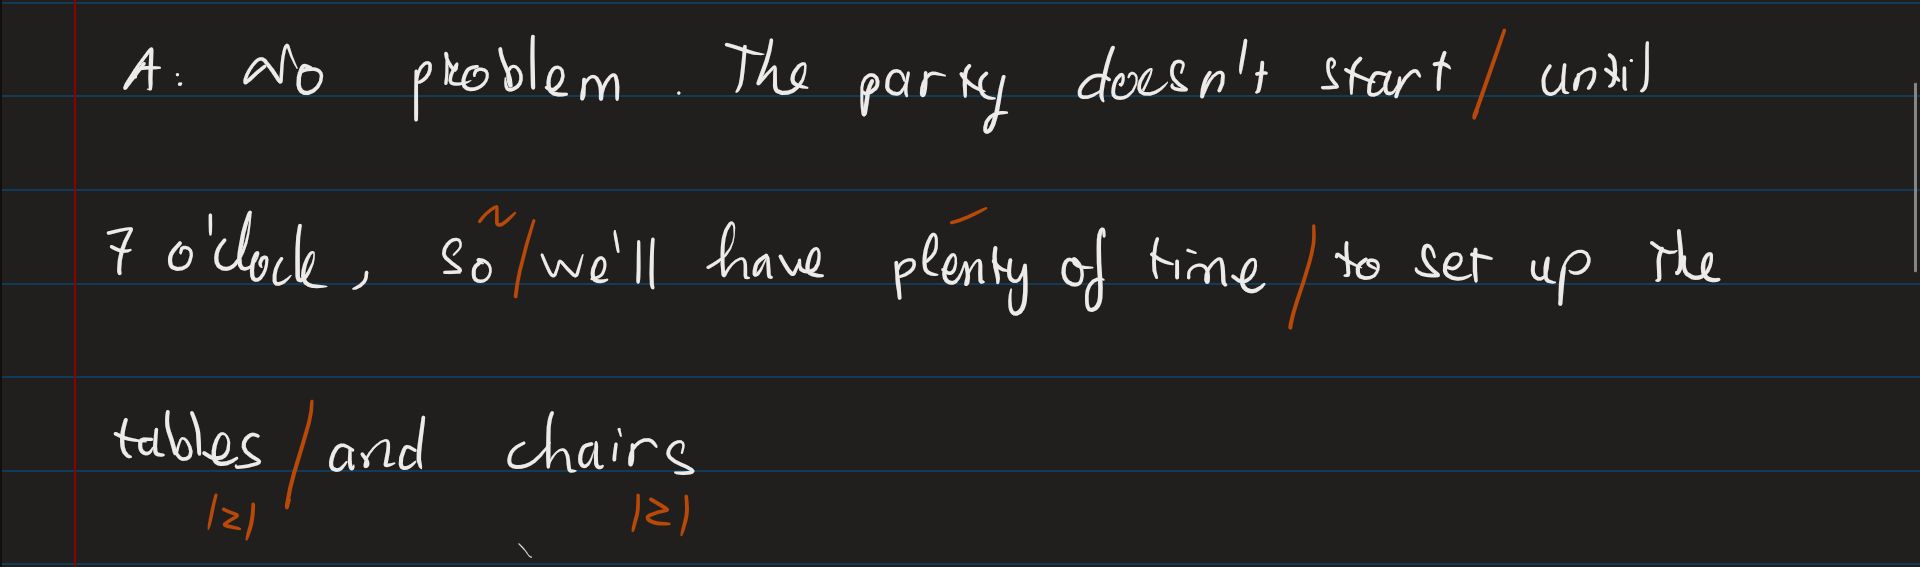 A: No problem. The party doesn't start / until
7 o'clock, so / we'll have plenty of time / to set up the
tables / and chairs
/z/ /z/